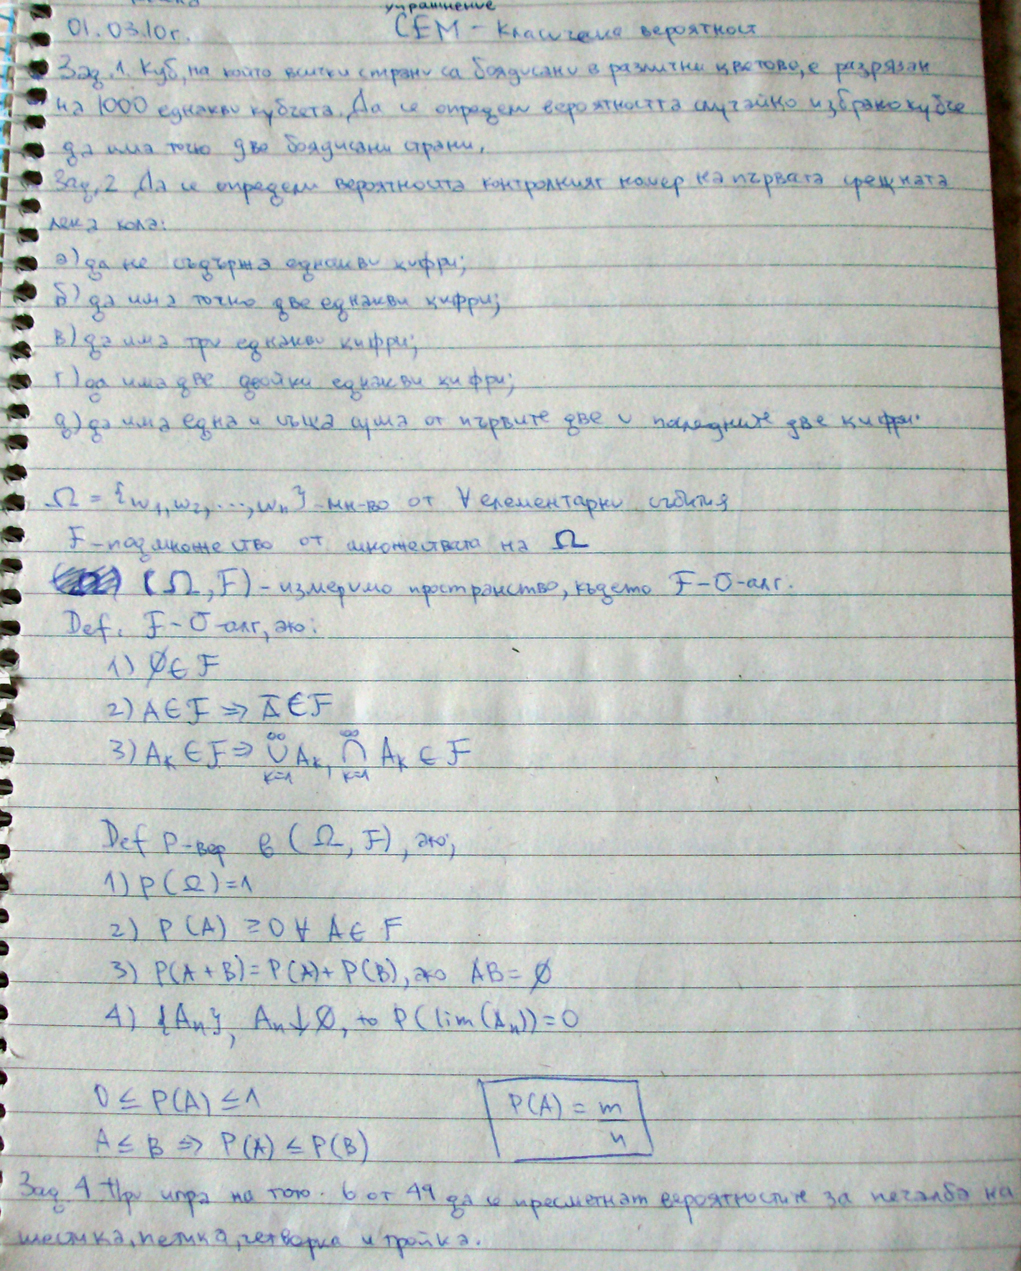 упражнение
01.03.10г. СЕМ - Класическа вероятност
Зад.1. Куб, на който всички страни са боядисани в различни цветове, е разрязан
на 1000 еднакви кубчета. Да се определи вероятността случайно избрано кубче
да има точно две боядисани страни.
Зад.2 Да се определи вероятността контролният номер на първата срещната
лека кола:
а) да не съдържа еднакви цифри;
б) да има точно две еднакви цифри;
в) да има три еднакви цифри;
г) да има две двойки еднакви цифри;
д) да има една и съща сума от първите две и последните две цифри.
Ω = {ω₁, ω₂, ..., ωₙ} - мн-во от ∀ елементарни събития
F - подмножество от множествата на Ω
(Ω, F) - измеримо пространство, където F - σ-алг.
Def. F - σ-алг, ако:
1) ∅ ∈ F
2) A ∈ F => Ā ∈ F
3) Aₖ ∈ F => ∞∪k=1 Aₖ, ∞∩k=1 Aₖ ∈ F
Def P-вер в (Ω, F), ако:
1) P(Ω)=1
2) P(A) ≥ 0 ∀ A ∈ F
3) P(A+B)=P(A)+P(B), ако AB=∅
4) {Aₙ}, Aₙ↓∅, то P(lim(Aₙ))=0
0 ≤ P(A) ≤ 1
P(A) = m/n
A ≤ B => P(A) ≤ P(B)
Зад.4 При игра на тото. 6 от 49 да се пресметнат вероятностите за печалба на
шестица, петица, четворка и тройка.